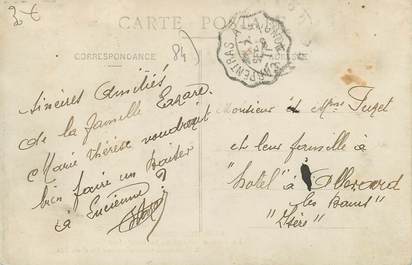 3€
CARTE POSTALE
84)
CORRESPONDANCE
CARPENTRAS A
Sincères Amitiés
de la famille
Marie Thérèse voudrait
bien faire un baiser
à Lucienne
Monsieur et Mme Fuzet
et leur famille à
"hotel" à Allevard
les Bains
"Isère"